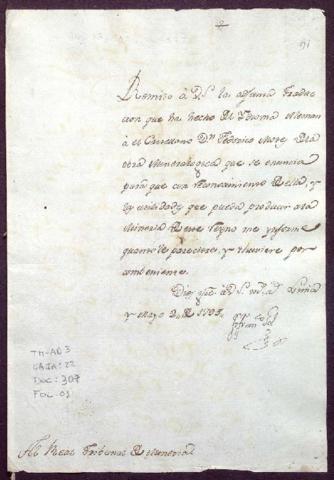 91
Remito à V.S. la adjunta traduc
cion que ha hecho del Ydioma Aleman
à el Castellano Dn. Federico Mothes de la
obra Mineralogica que se enuncia
para que con reconocimiento de ella, y
las utilidades que pueda producir à la
Mineria de este Reyno me ynforme
quanto le pareciere, y tuviere por
combeniente.
Dios gue. à V.S. ms. as. Lima
y Mayo de
TM-AD 3
CAJA: 22
DOC: 307
FOL: 01
Al Real Tribunal de Mineria